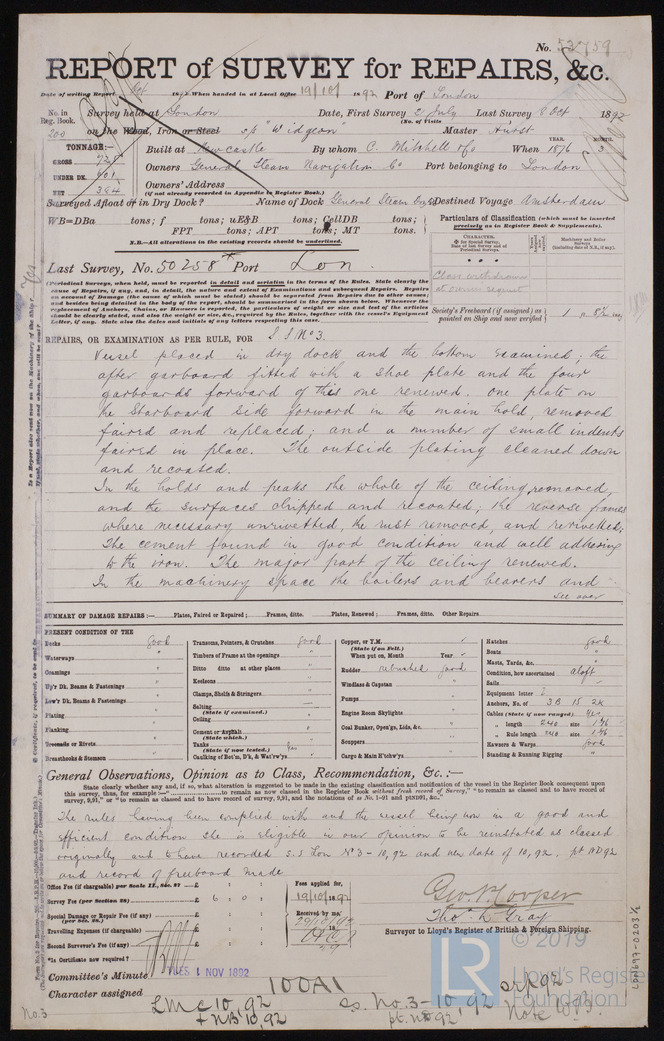 No. 52159
REPORT of SURVEY for REPAIRS, &c.
Date of writing Report Oct 1892 When handed in at Local Office 19/10/ 1892 Port of London
No. in Reg. Book. Survey held at London Date, First Survey 2 July Last Survey 8 Oct 1892
200 on the Wood, Iron or Steel s/s "Widgeon" (No. of Visits Master Hurst
TONNAGE:— Built at Newcastle By whom C. Mitchell & Co When 1876 YEAR. MONTH. 3
GROSS
Owners General Steam Navigation Co Port belonging to London
UNDER DK. 601
Owners' Address
(if not already recorded in Appendix to Register Book.)
NET 394
Surveyed Afloat or in Dry Dock? Name of Dock General Steam Destined Voyage Amsterdam
WB=DBa tons; f tons; uE&B tons; CellDB tons;
FPT tons; APT tons; MT tons.
N.B.—All alterations in the existing records should be underlined.
Particulars of Classification (which must be inserted precisely as in Register Book & Supplements).
CHARACTER.
Class withdrawn
at owners request
Last Survey, No. 50258 Port Lon.
(Periodical Surveys, when held, must be reported in detail and seriatim in the terms of the Rules. State clearly the
cause of Repairs, if any, and, in detail, the nature and extent of Examinations and subsequent Repairs. Repairs
on account of Damage (the name of which must be stated) should be separated from Repairs due to other causes;
Society's Freeboard (if assigned) as painted on Ship and now verified
REPAIRS, OR EXAMINATION AS PER RULE, FOR S S No 3.
Vessel placed in dry dock and the bottom examined; the
after garboard fitted with a shoe plate and the four
garboards forward of this one renewed. one plate on
the Starboard side forward in the main hold, removed
faired and replaced; and a number of small indents
faired in place. The outside plating cleaned down
and recoated.
In the holds and peaks the whole of the ceiling removed
and the surfaces chipped and recoated; the reverse frames
where necessary unrivetted, the rust removed, and rerivetted;
The cement found in good condition and well adhering
to the iron. The major part of the ceiling renewed.
In the machinery space the boilers and bearers and
see over
SUMMARY OF DAMAGE REPAIRS:— Plates, Faired or Repaired; Frames, ditto. Plates, Renewed; Frames, ditto. Other Repairs
PRESENT CONDITION OF THE
Decks good
Waterways "
Coamings "
Up'r Dk. Beams & Fastenings "
Low'r Dk. Beams & Fastenings "
Plating "
Planking "
Treenails or Rivets "
Breasthooks & Stemson "
Transoms, Pointers, & Crutches good
Timbers of Frame at the openings "
Ditto ditto at other places "
Keelsons "
Clamps, Shelfs & Stringers "
Salting —
(State if examined.)
Ceiling "
Cement or Asphalt "
(State which.)
Tanks Yes
(State if now tested.)
Caulking of Bot'm, D'k, & Wat'rw'ys "
Copper, or Y.M.
(State if on Felt.)
When put on, Month Year
Rudder rebushed good
Windlass & Capstan "
Pumps "
Engine Room Skylights "
Coal Bunker, Open'gs, Lids, &c. "
Scuppers "
Cargo & Main H'tchw'ys "
Hatches good
Boats "
Masts, Yards, &c. "
Condition, how ascertained aloft
Sails "
Equipment letter
Anchors, No. of 3B 1S 2K
Cables (State if now ranged) Yes
" length 240 size 1 7/16
" Rule length 240 size 1 7/16
Hawsers & Warps good
Standing & Running Rigging "
General Observations, Opinion as to Class, Recommendation, &c.:—
State clearly whether any, and if so, what alteration is suggested to be made in the existing classification and notification of the vessel in the Register Book consequent upon
this survey, thus, for example:—" ........ remains as now classed in the Register Book without fresh record of Survey," "to remain as classed and to have record of
survey, 9,91," or "to remain as classed and to have record of survey, 9,91, and the notations of ss No. 1-91 and ptND91, &c."
The rules having been complied with and the vessel being now in a good and
efficient condition she is eligible in our opinion to be reinstated as classed
originally and to have recorded S.S Lon No 3-10,92 and new date of 10,92. pt ND 92
and record of freeboard made
Office Fee (if chargeable) per Scale II., Sec. 27 £ : :
Survey Fee (per Section 28) £ 6 : 0 :
Special Damage or Repair Fee (if any) £ : :
(per Sec. 28.)
Travelling Expenses (if chargeable) £ : :
Second Surveyor's Fee (if any) £ : :
Is Certificate now required?
Fees applied for,
19/10/1892
Received by me,
Geo. P. Cooper
Thos. L. Gray
Surveyor to Lloyd's Register of British & Foreign Shipping.
Committee's Minute TUES 1 NOV 1892
Character assigned 100A1
LMC 10,92
+ NB 10,92
ss. No. 3-10,92
pt. ND 92
No. 3
LR
© 2019
Lloyd's Register
Foundation
LON697-0203 1/2